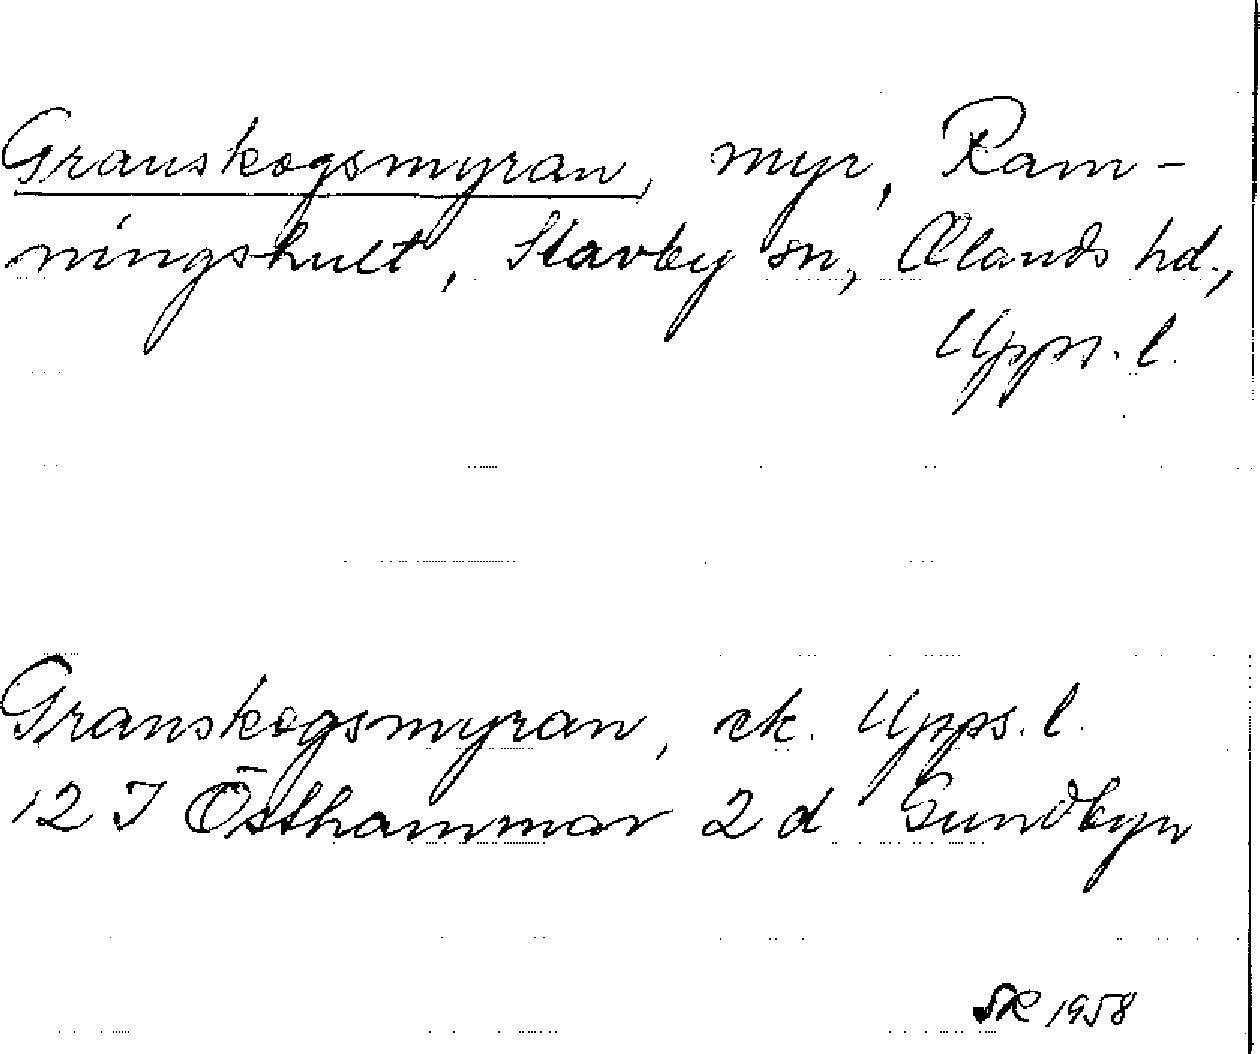 Granskogsmyran, myr, Ram-
ningshult, Stavby sn, Olands hd.,
Upps. l.
Granskogsmyran, ek. Upps. l.
12 I Östhammar 2 d Sundbyn
SR 1958